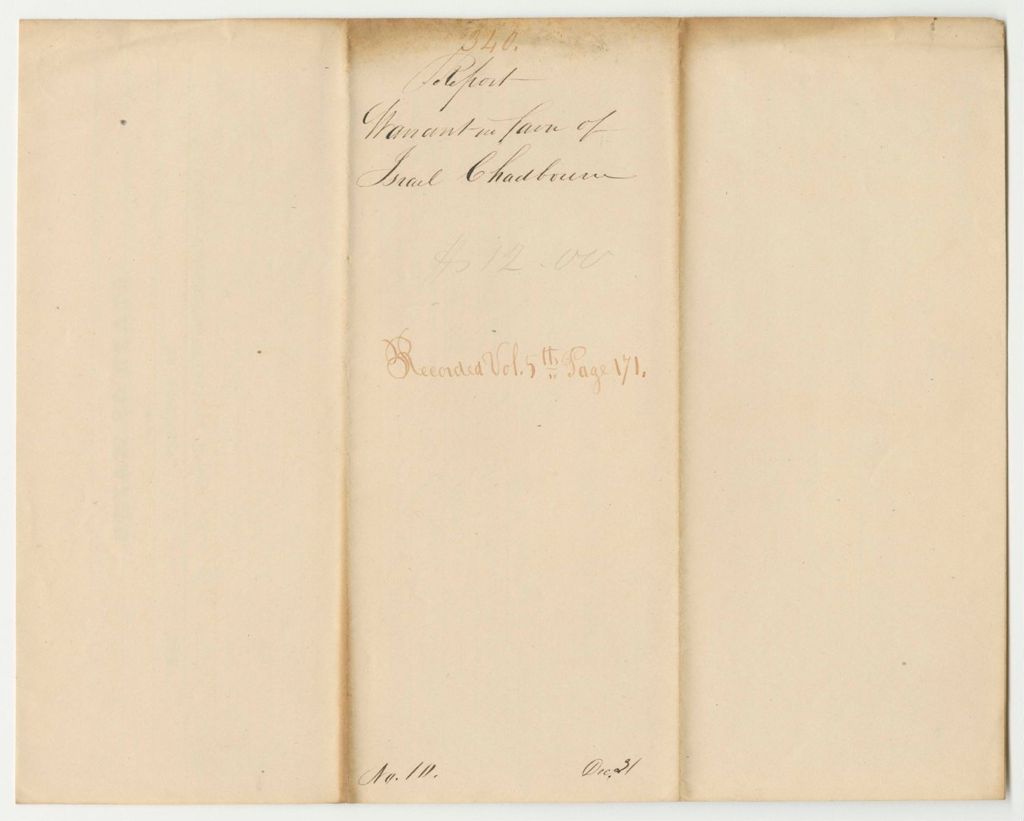 340.
Report
Warrant in favor of
Israel Chadbourn
$12.00
Recorded Vol. 5th Page 171.
No. 10. Dec. 31